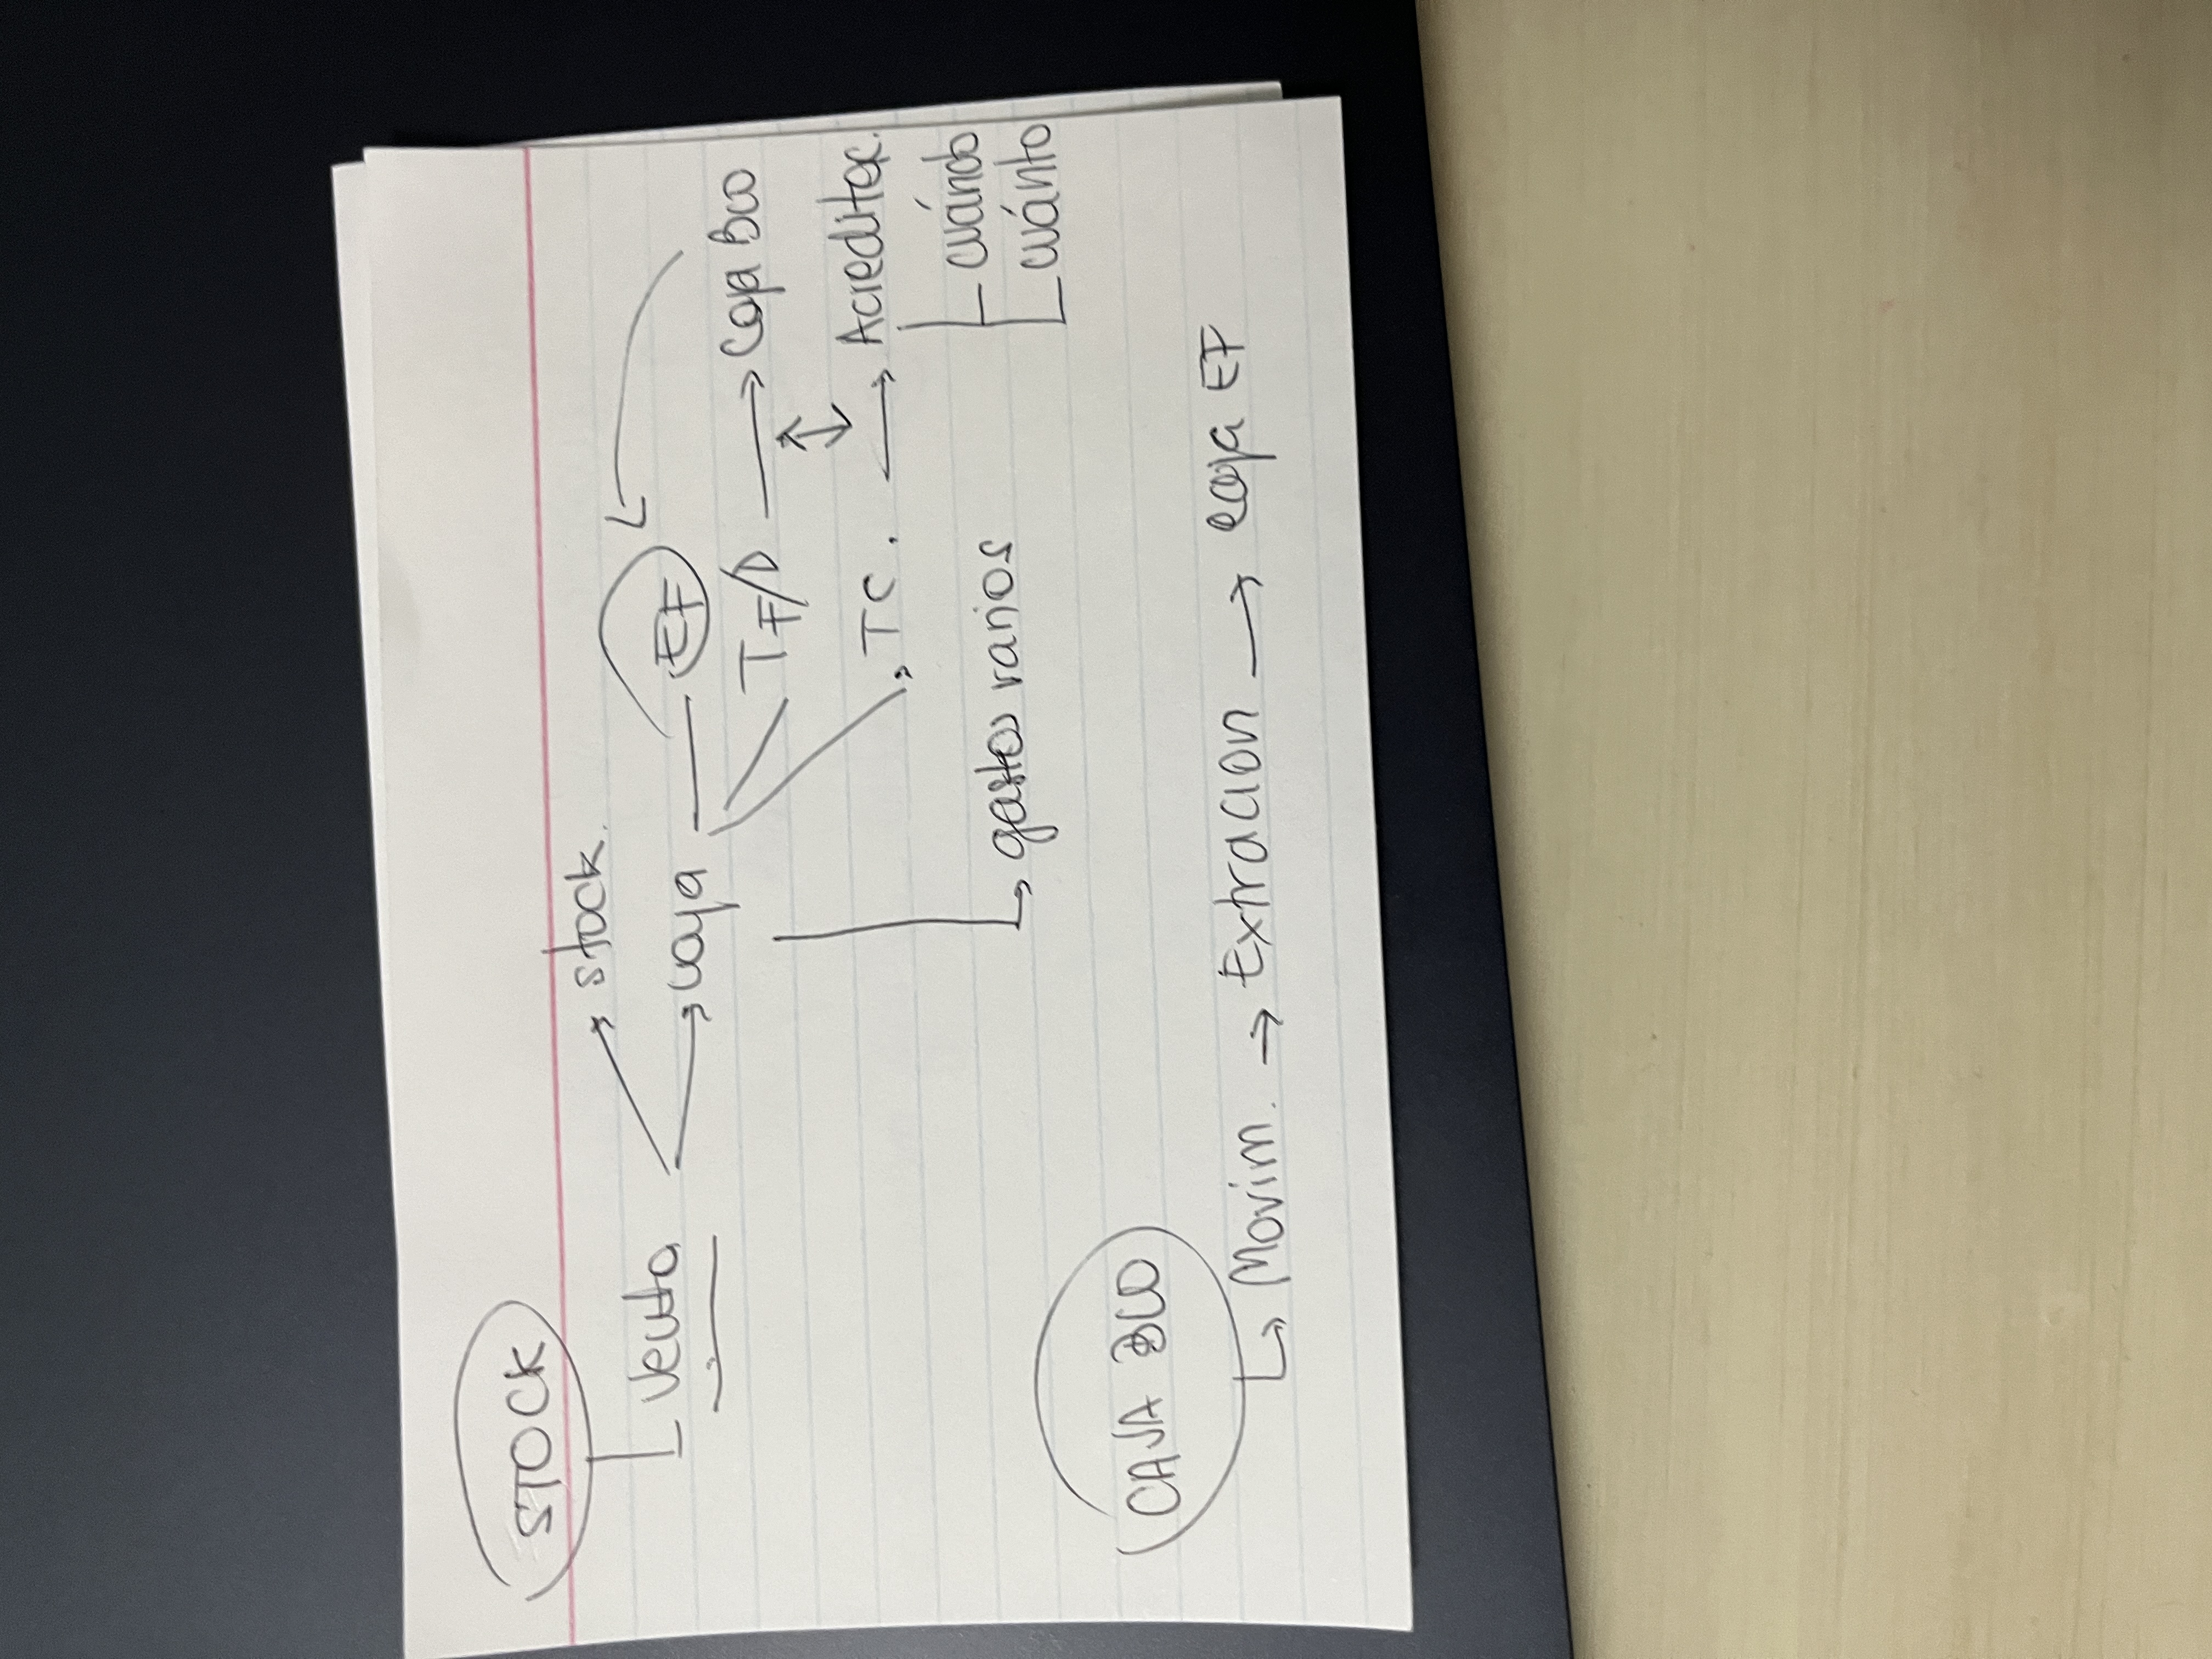 STOCK
Venta
stock.
caja
EF
TF/D
Caja Bco
TC.
Acreditac.
cuándo
cuánto
gastos varios
CAJA BCO
Movim.
Extracion
caja EF